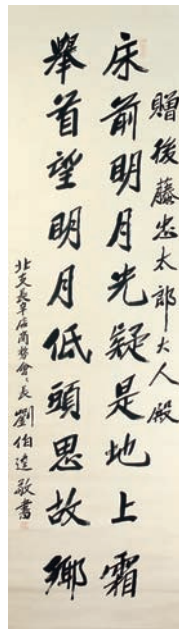 贈後藤忠太郎大人殿
床前明月光疑是地上霜
舉首望明月低頭思故鄉
北支長辛店商務會々長 劉伯達敬書